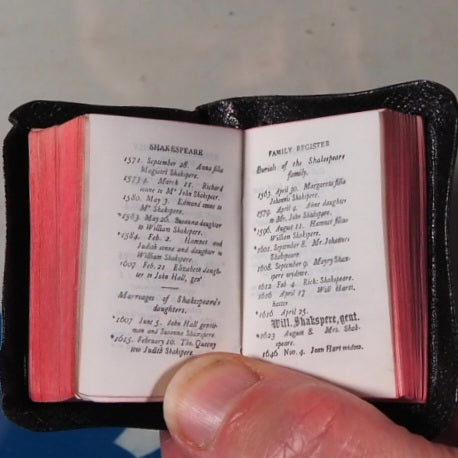 SHAKESPEARE
1571. September 28. Anna filia
Magistri Shakspere.
1573-4. March 11. Richard
sonne to Mr John Shakspeer.
1580. May 3. Edmund sonne to
Mr Shakspere.
*1583. May 26. Susanna daughter
to William Shakspere.
*1584. Feb. 2. Hamnet and
Judith sonne and daughter to
William Shakspere.
1607 Feb. 21 Elizabeth daugh-
ter to John Hall, gen
Marriages of Shakespeare's
daughters.
*1607 June 5. John Hall gentle-
man and Susanna Shaxspere.
*1615. February 10. Tho. Queeny
tow Judith Shakspere.
FAMILY REGISTER
Burials of the Shakespeare
family.
1563. April 30. Margareta filia
Johannis Shakspere.
1579. April 4. Anne daughter
to Mr. John Shakspere.
*1596. August 11. Hamnet filius
William Shakspere.
*1601. September 8. Mr. Johannes
Shakspeare.
1608. September 9. Mayry Shax-
pere wydowe.
1612. Feb 4. Rich: Shakspeare.
*1616 April 17 Will Hartt,
hatter
*1616 April 25.
Will. Shakspere, gent.
*1623 August 8. Mrs. Shak-
speare.
1646 Nov. 4. Joan Hart widow.